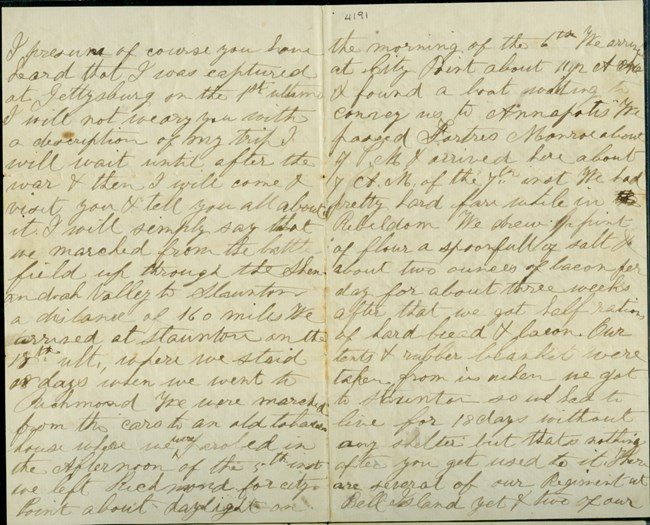 4191
I presume of course you have
heard that I was captured
at Jettysburg on the 1st
I will not weary you with
a description of my trip I
will wait until after the
war & then I will come &
visit you & tell you all about
it. I will simply say that
we marched from the battle
field up through the Shen
andoah Valley to Staunton
a distance of 160 miles We
arrived at Staunton on the
18th ult., where we staid
18 days when we went to
Richmond We were marched
from the cars to an old tobacco
house where we were paroled in
the Afternoon of the 5th inst
we left Richmond for City
Point about daylight on
the morning of the 6th We arrived
at City Point about A M
& found a boat waiting to
convey us to Annapolis We
passed Fortres Monroe about
9 P.M. & arrived here about
7 A.M. of the 7th inst We had
pretty hard fare while in
Rebeldom We drew pint
of flour a spoonfull of salt &
about two ounces of bacon per
day for about three weeks
after that we got half rations
of hard bread & bacon. Our
tents & rubber blanket were
taken from us when we got
to Staunton so we had to
live for 18 days without
any shelter but thats nothing
after you get used to it. There
are several of our Regiment at
Bell Island yet & two of our